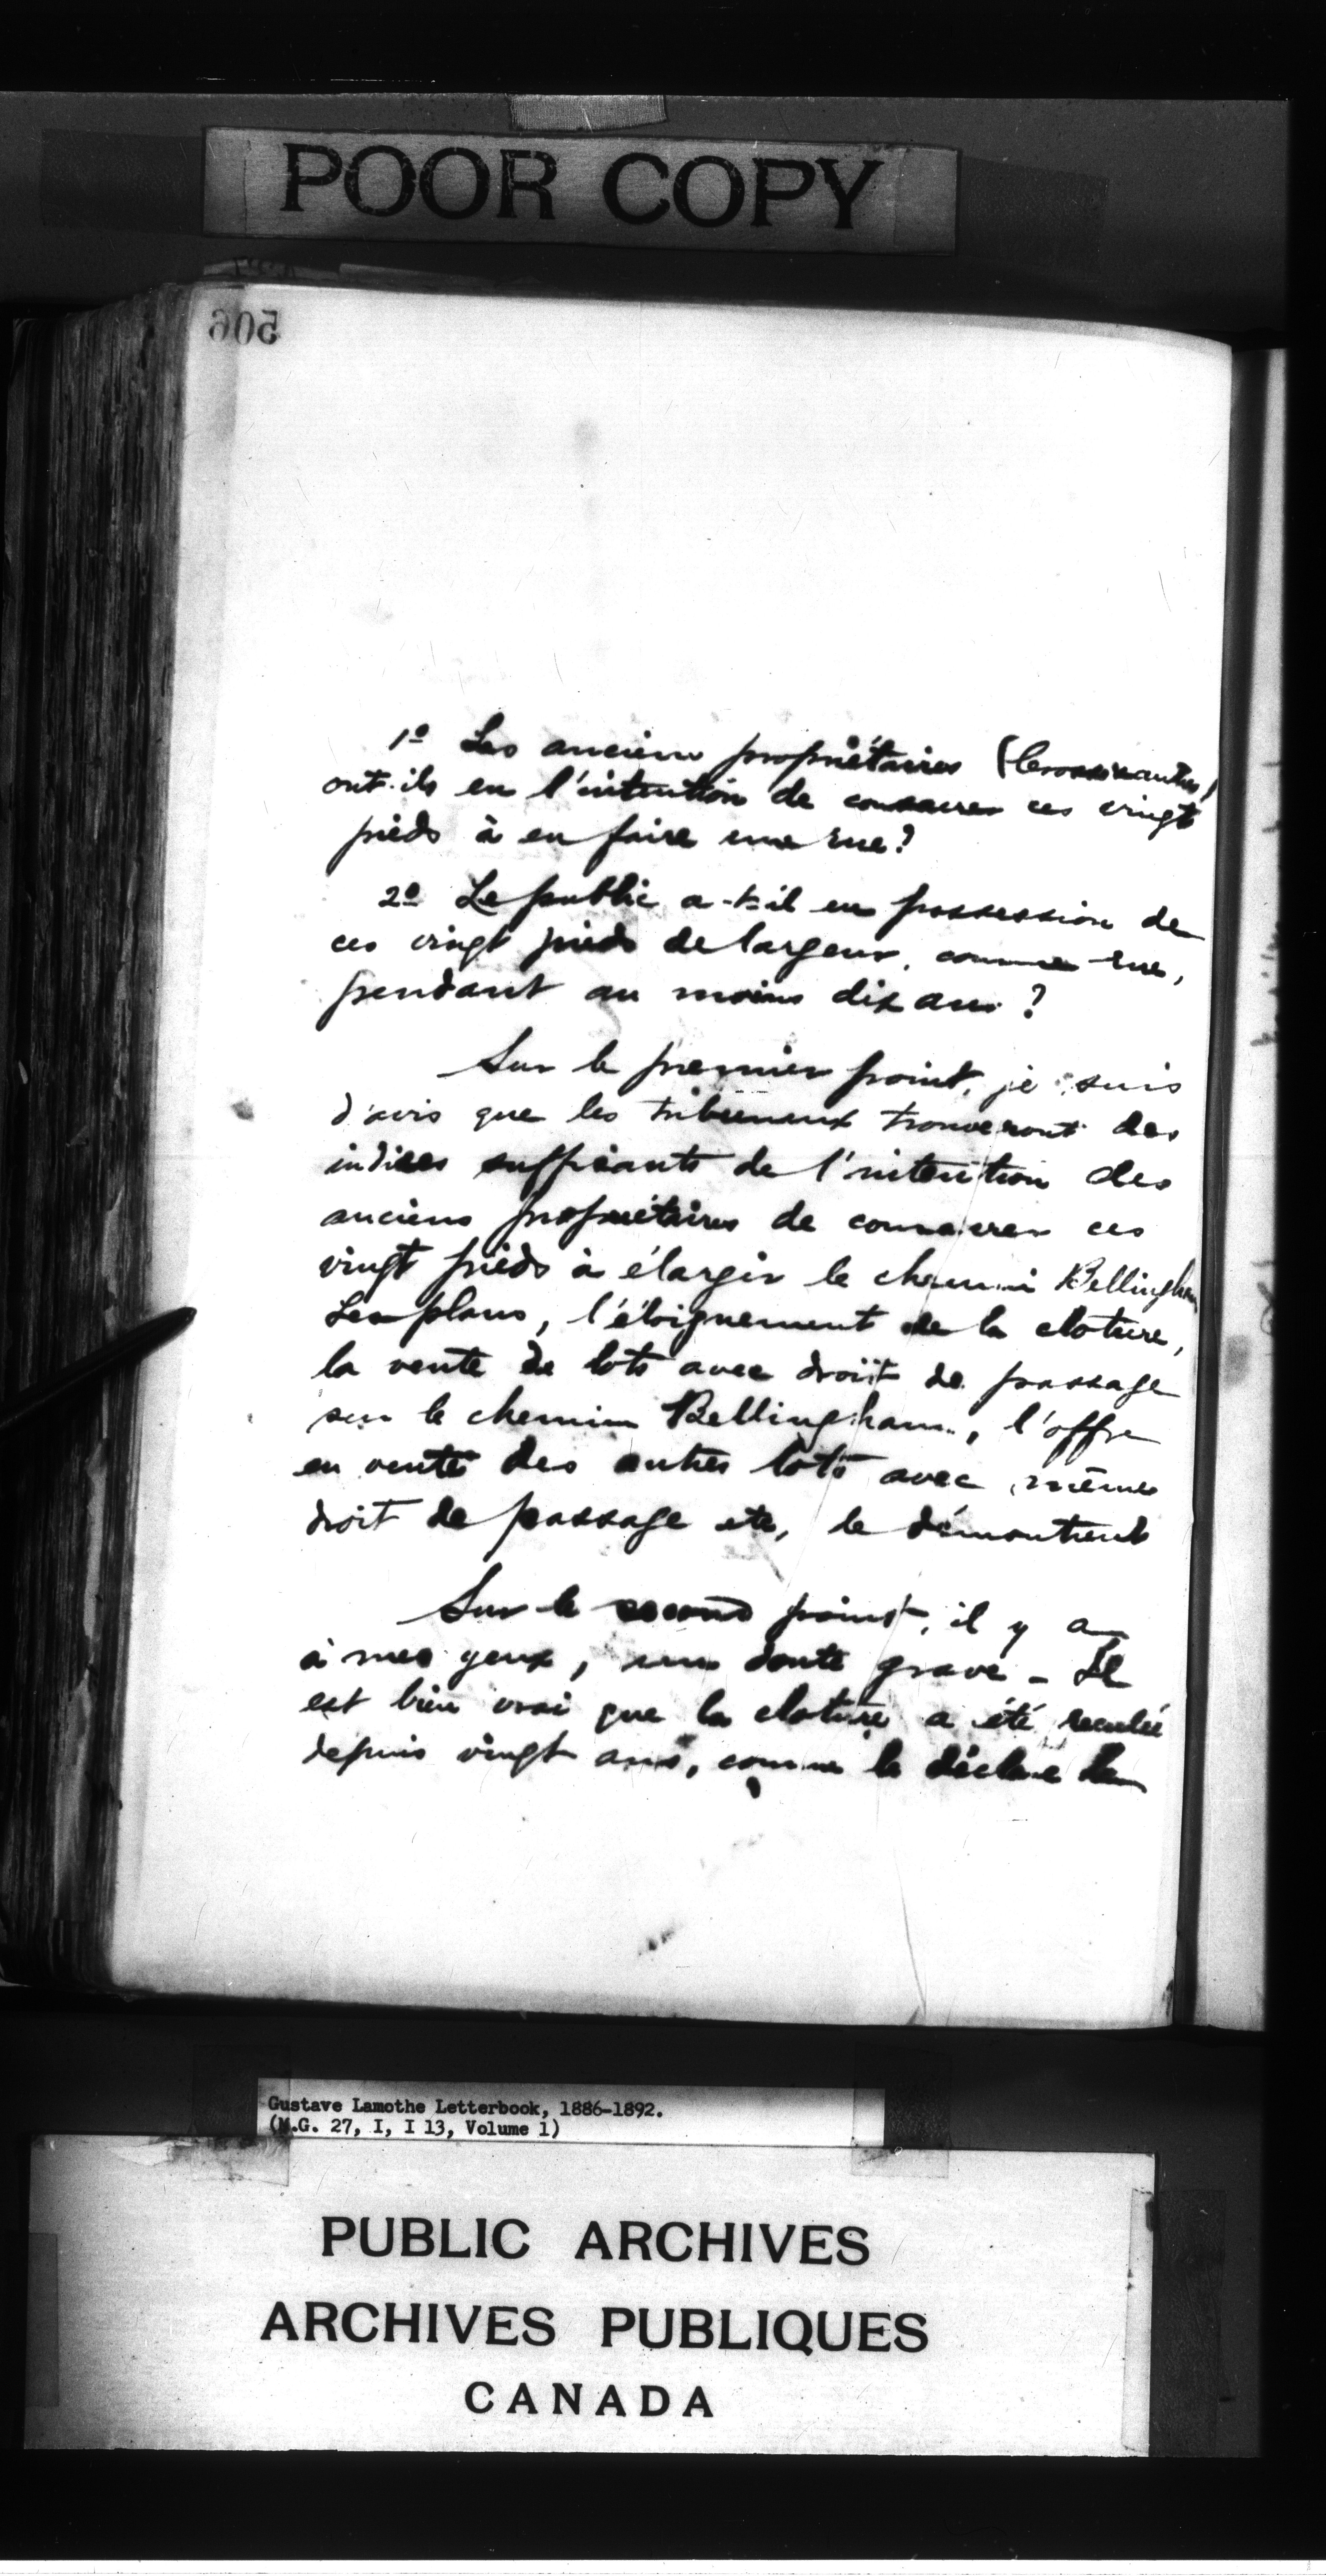 POOR COPY
506
1º Les anciens propriétaires
ont-ils eu l'intention de consacrer ces vingt
pieds à en faire une rue?
2º Le public a-t-il eu possession de
ces vingt pieds de largeur, comme rue,
pendant au moins dix ans?
Sur le premier point, je suis
d'avis que les tribunaux trouveront des
indices suffisants de l'intention des
anciens propriétaires de consacrer ces
vingt pieds à élargir le chemin Bellingham
Les plans, l'éloignement de la cloture,
la vente de lots avec droit de passage
sur le chemin Bellingham, l'offre
en vente des autres lots avec même
droit de passage etc, le démontrent
Sur le second point, il y a
à mes yeux, un doute grave - Il
est bien vrai que la cloture a été reculée
depuis vingt ans, comme le déclare
Gustave Lamothe Letterbook, 1886-1892.
(M.G. 27, I, I 13, Volume 1)
PUBLIC ARCHIVES
ARCHIVES PUBLIQUES
CANADA